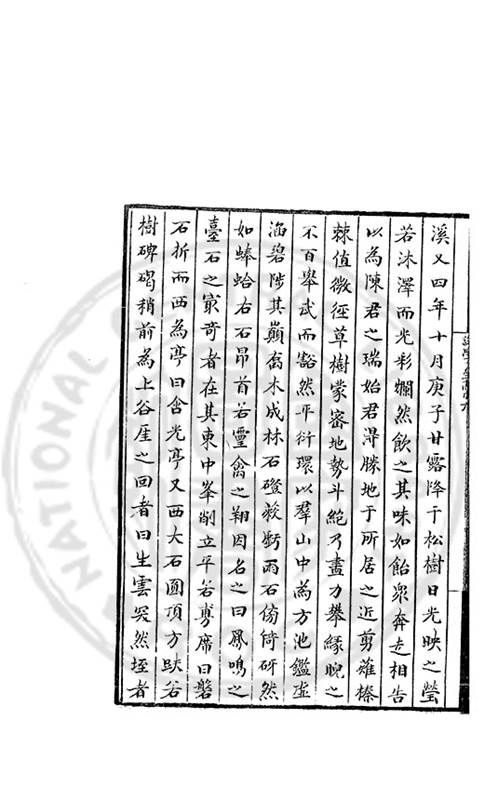 溪又四年十月庚子甘露降于松樹日光映之瑩
若沐澤而光彩斕然飲之其味如飴衆奔走相告
以為陳君之瑞始君淂勝地于所居之近剪薙榛
棘值微徑草樹蒙密地勢斗絕乃盡力攀緣睨之
不百舉武而豁然平衍環以羣山中為方池鑑虛
涵碧陟其巔喬木成林石磴嵌嶄兩石倚傍砑然
如蜯蛤右石昂首若靈禽之翔因名之曰鳳鳴之
臺石之㝡奇者在其東中峯削立平若剪席曰磐
石折而西為亭曰含光亭又西大石圓頂方趺谷
樹碑碣稍前為上谷厓之回者曰生雲突然垤者
NATIONAL CENTRAL